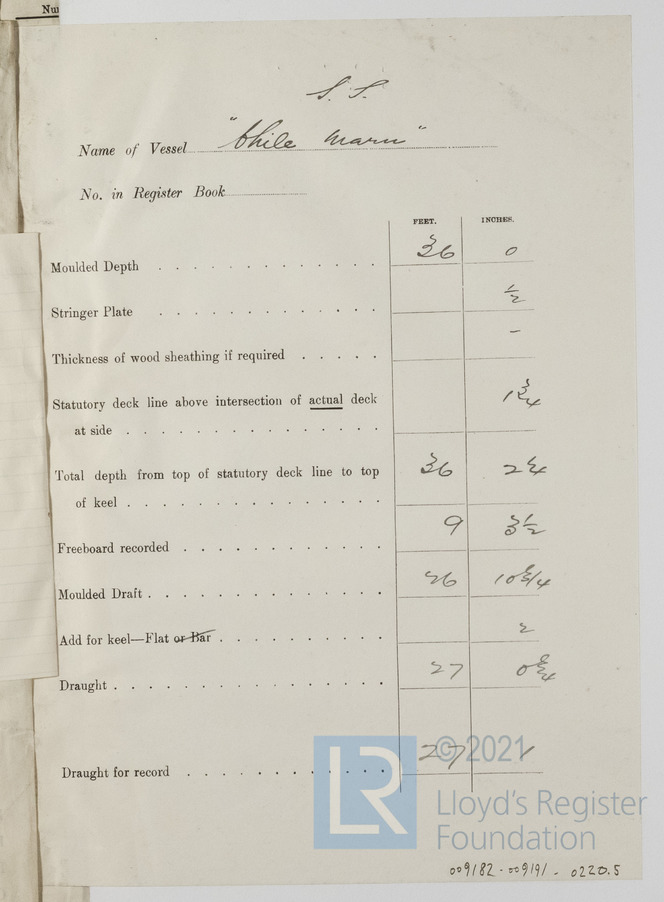 Nu
S. S.
Name of Vessel "Chile Maru"
No. in Register Book
FEET. INCHES.
Moulded Depth 36 0
Stringer Plate ½
Thickness of wood sheathing if required –
Statutory deck line above intersection of actual deck
at side 1¾
Total depth from top of statutory deck line to top
of keel 36 2¼
Freeboard recorded 9 3½
Moulded Draft 26 10¾
Add for keel—Flat or Bar 2
Draught 27 0¾
Draught for record 27 1
© 2021
LR
Lloyd's Register
Foundation
009182-009191-0220.5